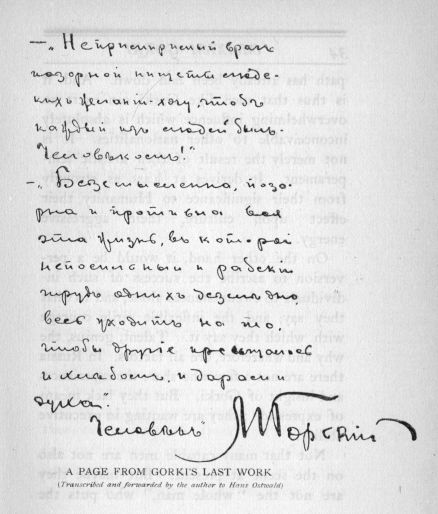 —„Непримиримый врагъ
позорной нищеты людс-
кихъ желаній - хочу, чтобъ
каждый изъ людей былъ -
Человѣкомъ!"
—„Безсмысленна, позо-
рна и противна вся
эта жизнь, въ которой
непосильный и рабскій
трудъ однихъ безслѣдно
весь уходитъ на то,
чтобы другіе пресыщались
и хлѣбомъ, и дарами
духа".
„Человѣкъ" М Горькій
A PAGE FROM GORKI'S LAST WORK
(Transcribed and forwarded by the author to Hans Ostwald)